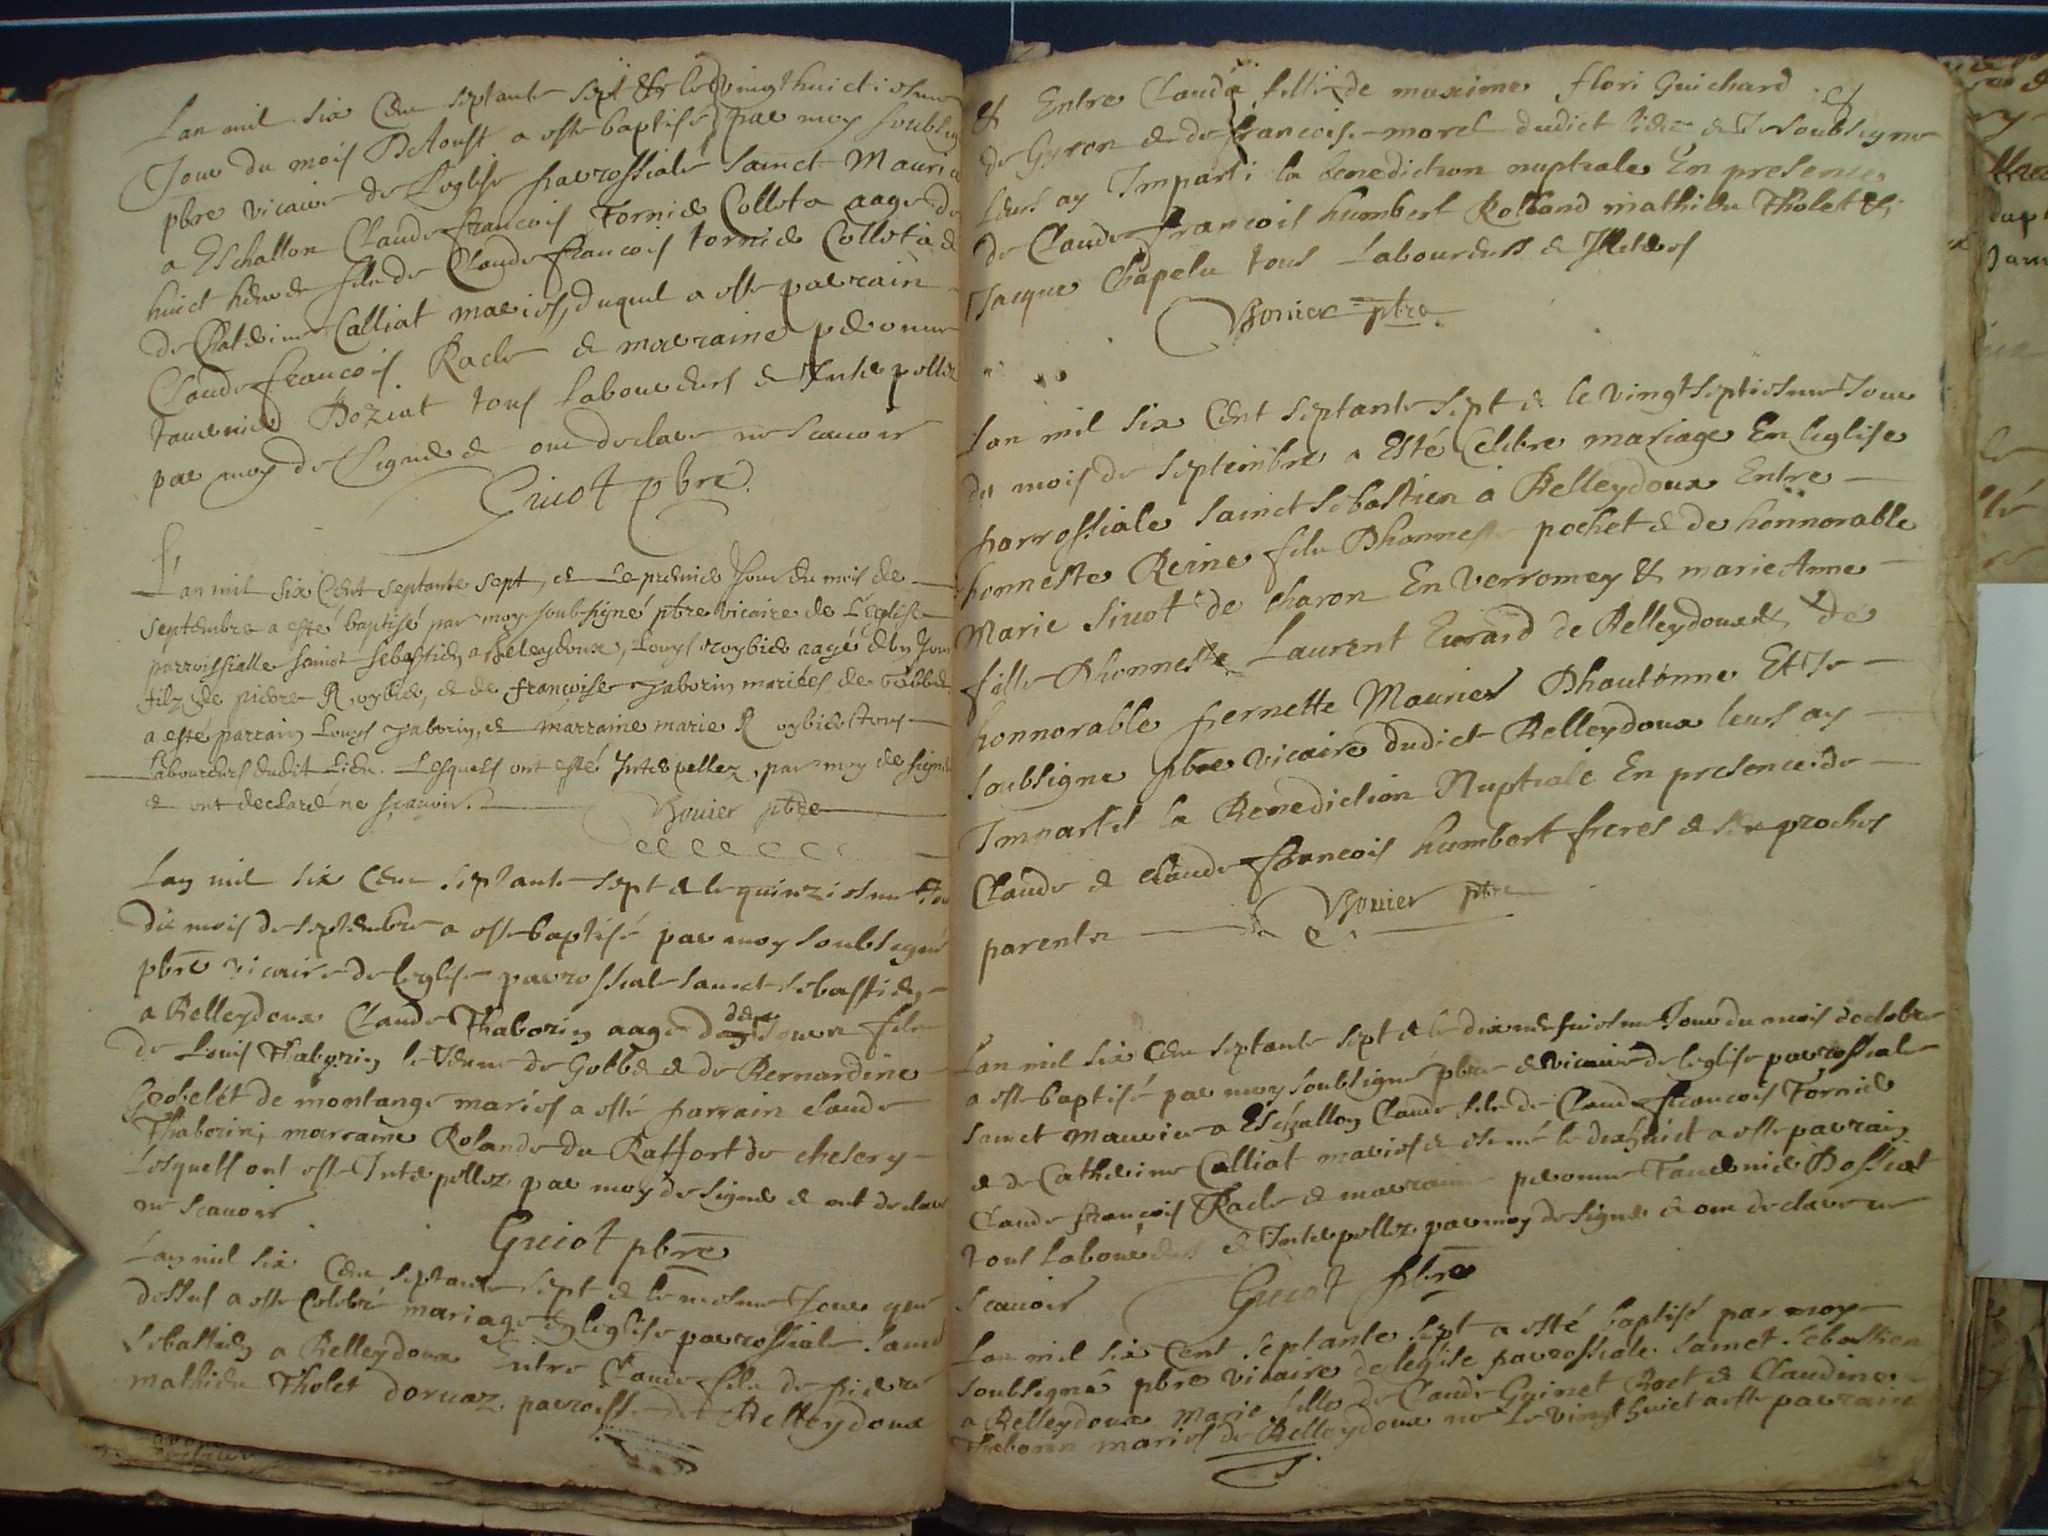 Lan mil six Cens septante sept & le vingthuictiesme
Jour du mois Daoust a este baptisé par moy soubsig
pbre vicaire de Leglise parrossiale Sainct Mauric
a Eschallon Claude francois Tornier Colleta aage de
huict heure fils de Claude francois tornier Colleta &
de Catherine Calliat maries, duquel a este parrain
Claude francois Racle & marraine peronne
tavernier Boziat tous laboureurs & Interpellez
par moy de signer & ont declare ne scavoir
Guiot pbre
L'an mil Six Cent septante sept, et Le premier Jour du mois de
septembre a esté baptisé par moy soubsigné pbre vicaire de L'eglise
parroissialle sainct sebastien a Beleydoux, Louys roybier aagé d'un Jour
filz de pierre Roybier, et de françoise Taborin mariées de Gobbet
a esté parrain Louys Taborin, et marraine marie Roybier tous
Laboureurs dudit Lieu. Lesquels ont esté Interpellez, par moy de signer
et ont declaré ne sçavoir.
Bouier pbre
Lan mil six Cens septante sept & le quinziesme Jou
du mois de septembre a este baptisé par moy soubsigné
pbre vicaire de leglise parrossiale sainct sebastien
a Belleydoux Claude Thaborin aage de deux Jours fils
de Louis Thaborin le Jeune de Gobbet & de Bernardine
Gobelét de montange maries a esté parrain claude
Thaborin, marraine Rolande du Raffort de chesery
Lesquels ont este Interpellez par moy de signer & ont declare
ne scavoir
Guiot pbre
Lan mil six Cens septante sept & le mesme Jour que
dessus a este Celebré mariage En leglise parrossiale Sainct
Sebastien a Belleydoux Entre Claude fils de pierre
mathieu Tholet dorvaz parroisse de Belleydoux
& Entre Clauda fille de maxime flori Guichard
de Gyron & de francoise morel dudict lieu & Je soubsigne
Leurs ay Imparti la benediction nuptiale En presence
de Claude francois humbert Rolland mathieu Tholet &
Jacque Chapelu tous Laboureurs & Illetres
Bouier pbre
Lan mil six Cent septante sept & le vingt septiesme Jour
du mois de septembre a Esté Celebre mariage En leglise
parrossiale sainct sebastien a Belleydoux Entre
honneste Reine fils Dhonneste pochet & de honnorable
Marie Sivot de charon En verromey & marie Anne
fille Dhonneste Laurent Evrard de Belleydoux & de
honnorable pernette Maurier Dhautonne Et Je
soubsigne pbre vicaire dudict Belleydoux leurs ay
Impartis la Benediction Nuptiale En presence de
Claude & claude francois humbert freres & ses proches
parents
Bouier pbre
Lan mil six Cens septante sept & le dix neufviesme Jour du mois doctobre
a este baptisé par moy soubsigné pbre & vicaire de leglise parrossiale
sainct Maurice a Eschallon Claude fils de Claude francois Tornier
& de Catherine Calliat maries & est né le dixhuict a este parrain
Claude francois Racle & marraine peronne Tavernier Bossiat
tous laboureurs & Interpellez par moy de signer & ont declare ne
scavoir
Guiot pbre
Lan mil six Cent septante sept a esté baptisé par moy
soubsigné pbre vicaire de leglise parrossiale sainct sebastien
a Belleydoux Marie fille de Claude Guinet Roct & Claudine
Thaborin maries de Belleydoux ne le vingt huict a este parrain